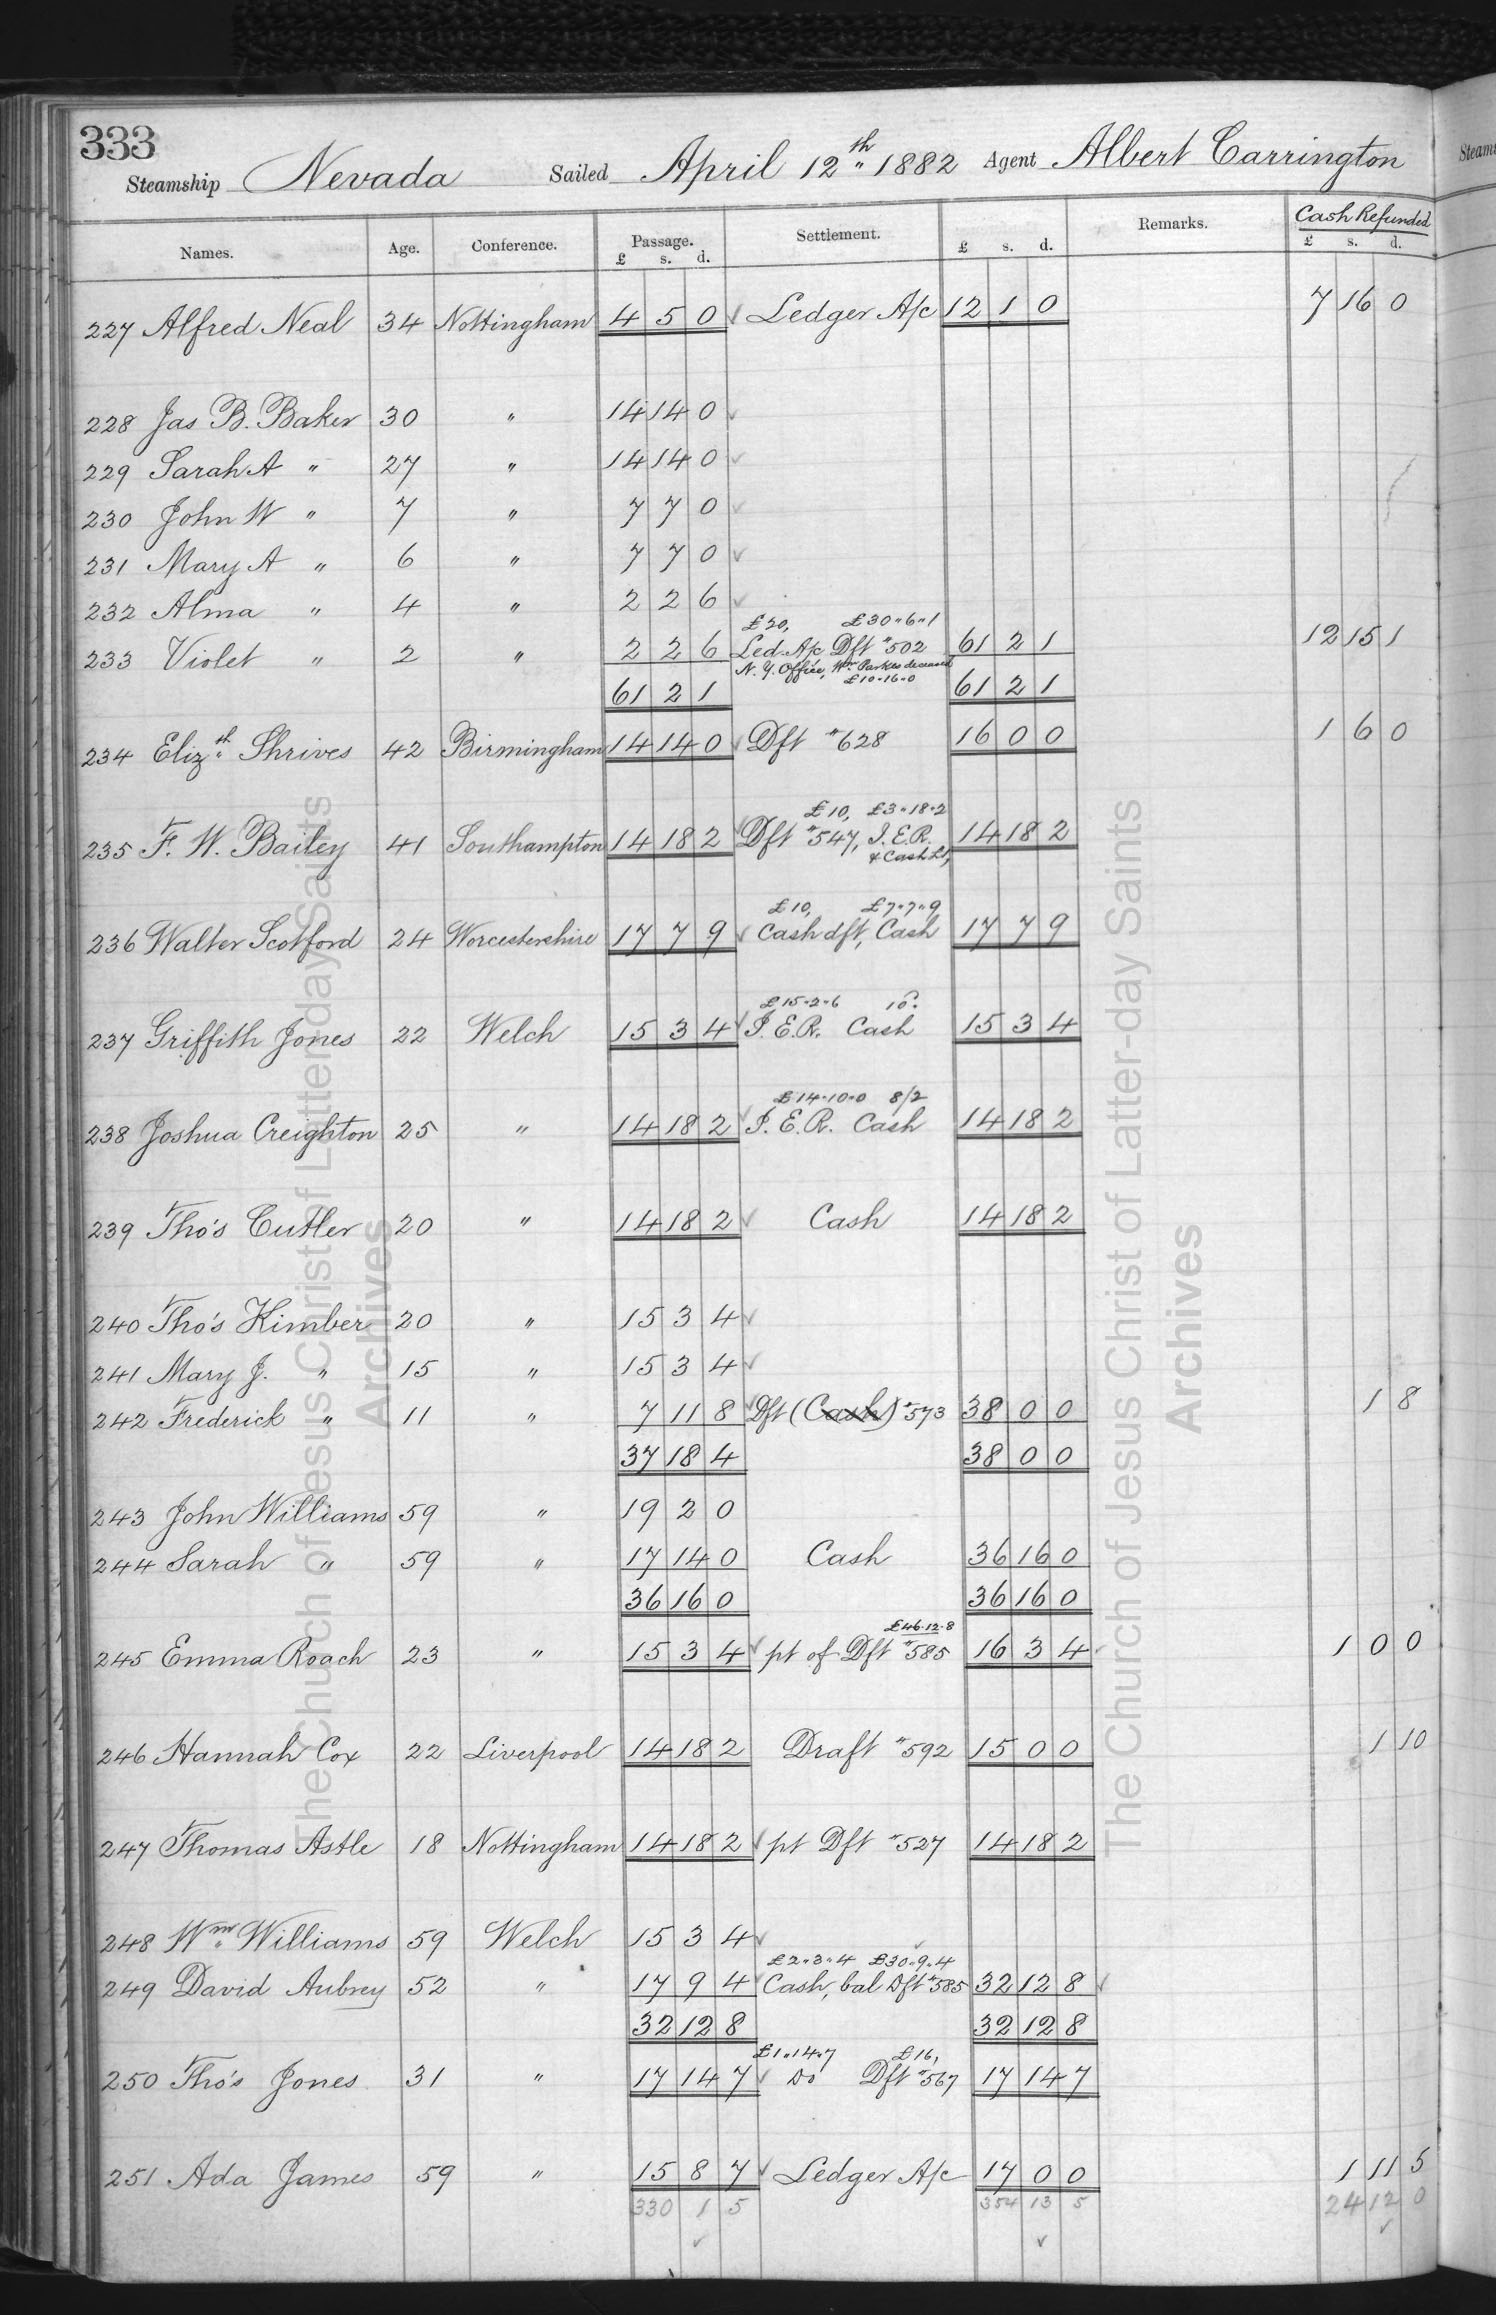 333
Steamship Nevada Sailed April 12th 1882 Agent Albert Carrington
Names. Age. Conference. Passage. Settlement. Remarks. Cash Refunded
£ s. d. £ s. d. £ s. d.
227 Alfred Neal 34 Nottingham 4 5 0 ✓ Ledger A/c 12 1 0 7 16 0
228 Jas B. Baker 30 " 14 14 0 ✓
229 Sarah A " 27 " 14 14 0 ✓
230 John W " 7 " 7 7 0 ✓
231 Mary A " 6 " 7 7 0 ✓
232 Alma " 4 " 2 2 6 ✓
£20, £30"6"1
233 Violet " 2 " 2 2 6 Led. A/c Dft "502 61 2 1 12 15 1
N.Y. Office, Wm Parkes deceased
£10"16"0
61 2 1 61 2 1
234 Elizth Shrives 42 Birmingham 14 14 0 ✓ Dft "628 16 0 0 1 6 0
£10, £3"18"2
235 F. W. Bailey 41 Southampton 14 18 2 ✓ Dft "547, I.E.R. 14 18 2
& Cash
£10, £7"7"9
236 Walter Scotford 24 Worcestershire 17 7 9 ✓ Cash dft, Cash 17 7 9
£15"2"6 10d.
237 Griffith Jones 22 Welch 15 3 4 ✓ I.E.R. Cash 15 3 4
£14"10"0 8/2
238 Joshua Creighton 25 " 14 18 2 ✓ I.E.R. Cash 14 18 2
239 Tho's Cutler 20 " 14 18 2 ✓ Cash 14 18 2
240 Tho's Kimber 20 " 15 3 4 ✓
241 Mary J. " 15 " 15 3 4 ✓
242 Frederick " 11 " 7 11 8 ✓ Dft (Cash) "573 38 0 0 1 8
37 18 4 38 0 0
243 John Williams 59 " 19 2 0
244 Sarah " 59 " 17 14 0 Cash 36 16 0
36 16 0 36 16 0
£46.12.8
245 Emma Roach 23 " 15 3 4 ✓ pt of Dft "585 16 3 4 1 0 0
246 Hannah Cox 22 Liverpool 14 18 2 Draft "592 15 0 0 1 10
247 Thomas Astle 18 Nottingham 14 18 2 ✓ pt Dft "527 14 18 2
248 Wm Williams 59 Welch 15 3 4 ✓
£2"3"4 £30"9"4
249 David Aubrey 52 " 17 9 4 ✓ Cash, bal Dft "585 32 12 8 ✓
32 12 8 32 12 8
£1"14"7 £16,
250 Tho's Jones 31 " 17 14 7 ✓ Do Dft "567 17 14 7
251 Ada James 59 " 15 8 7 ✓ Ledger A/c 17 0 0 1 11 5
330 1 5 354 13 5 24 12 0
✓ ✓ ✓
The Church of Jesus Christ of Latter-day Saints
Archives
The Church of Jesus Christ of Latter-day Saints
Archives
Steams